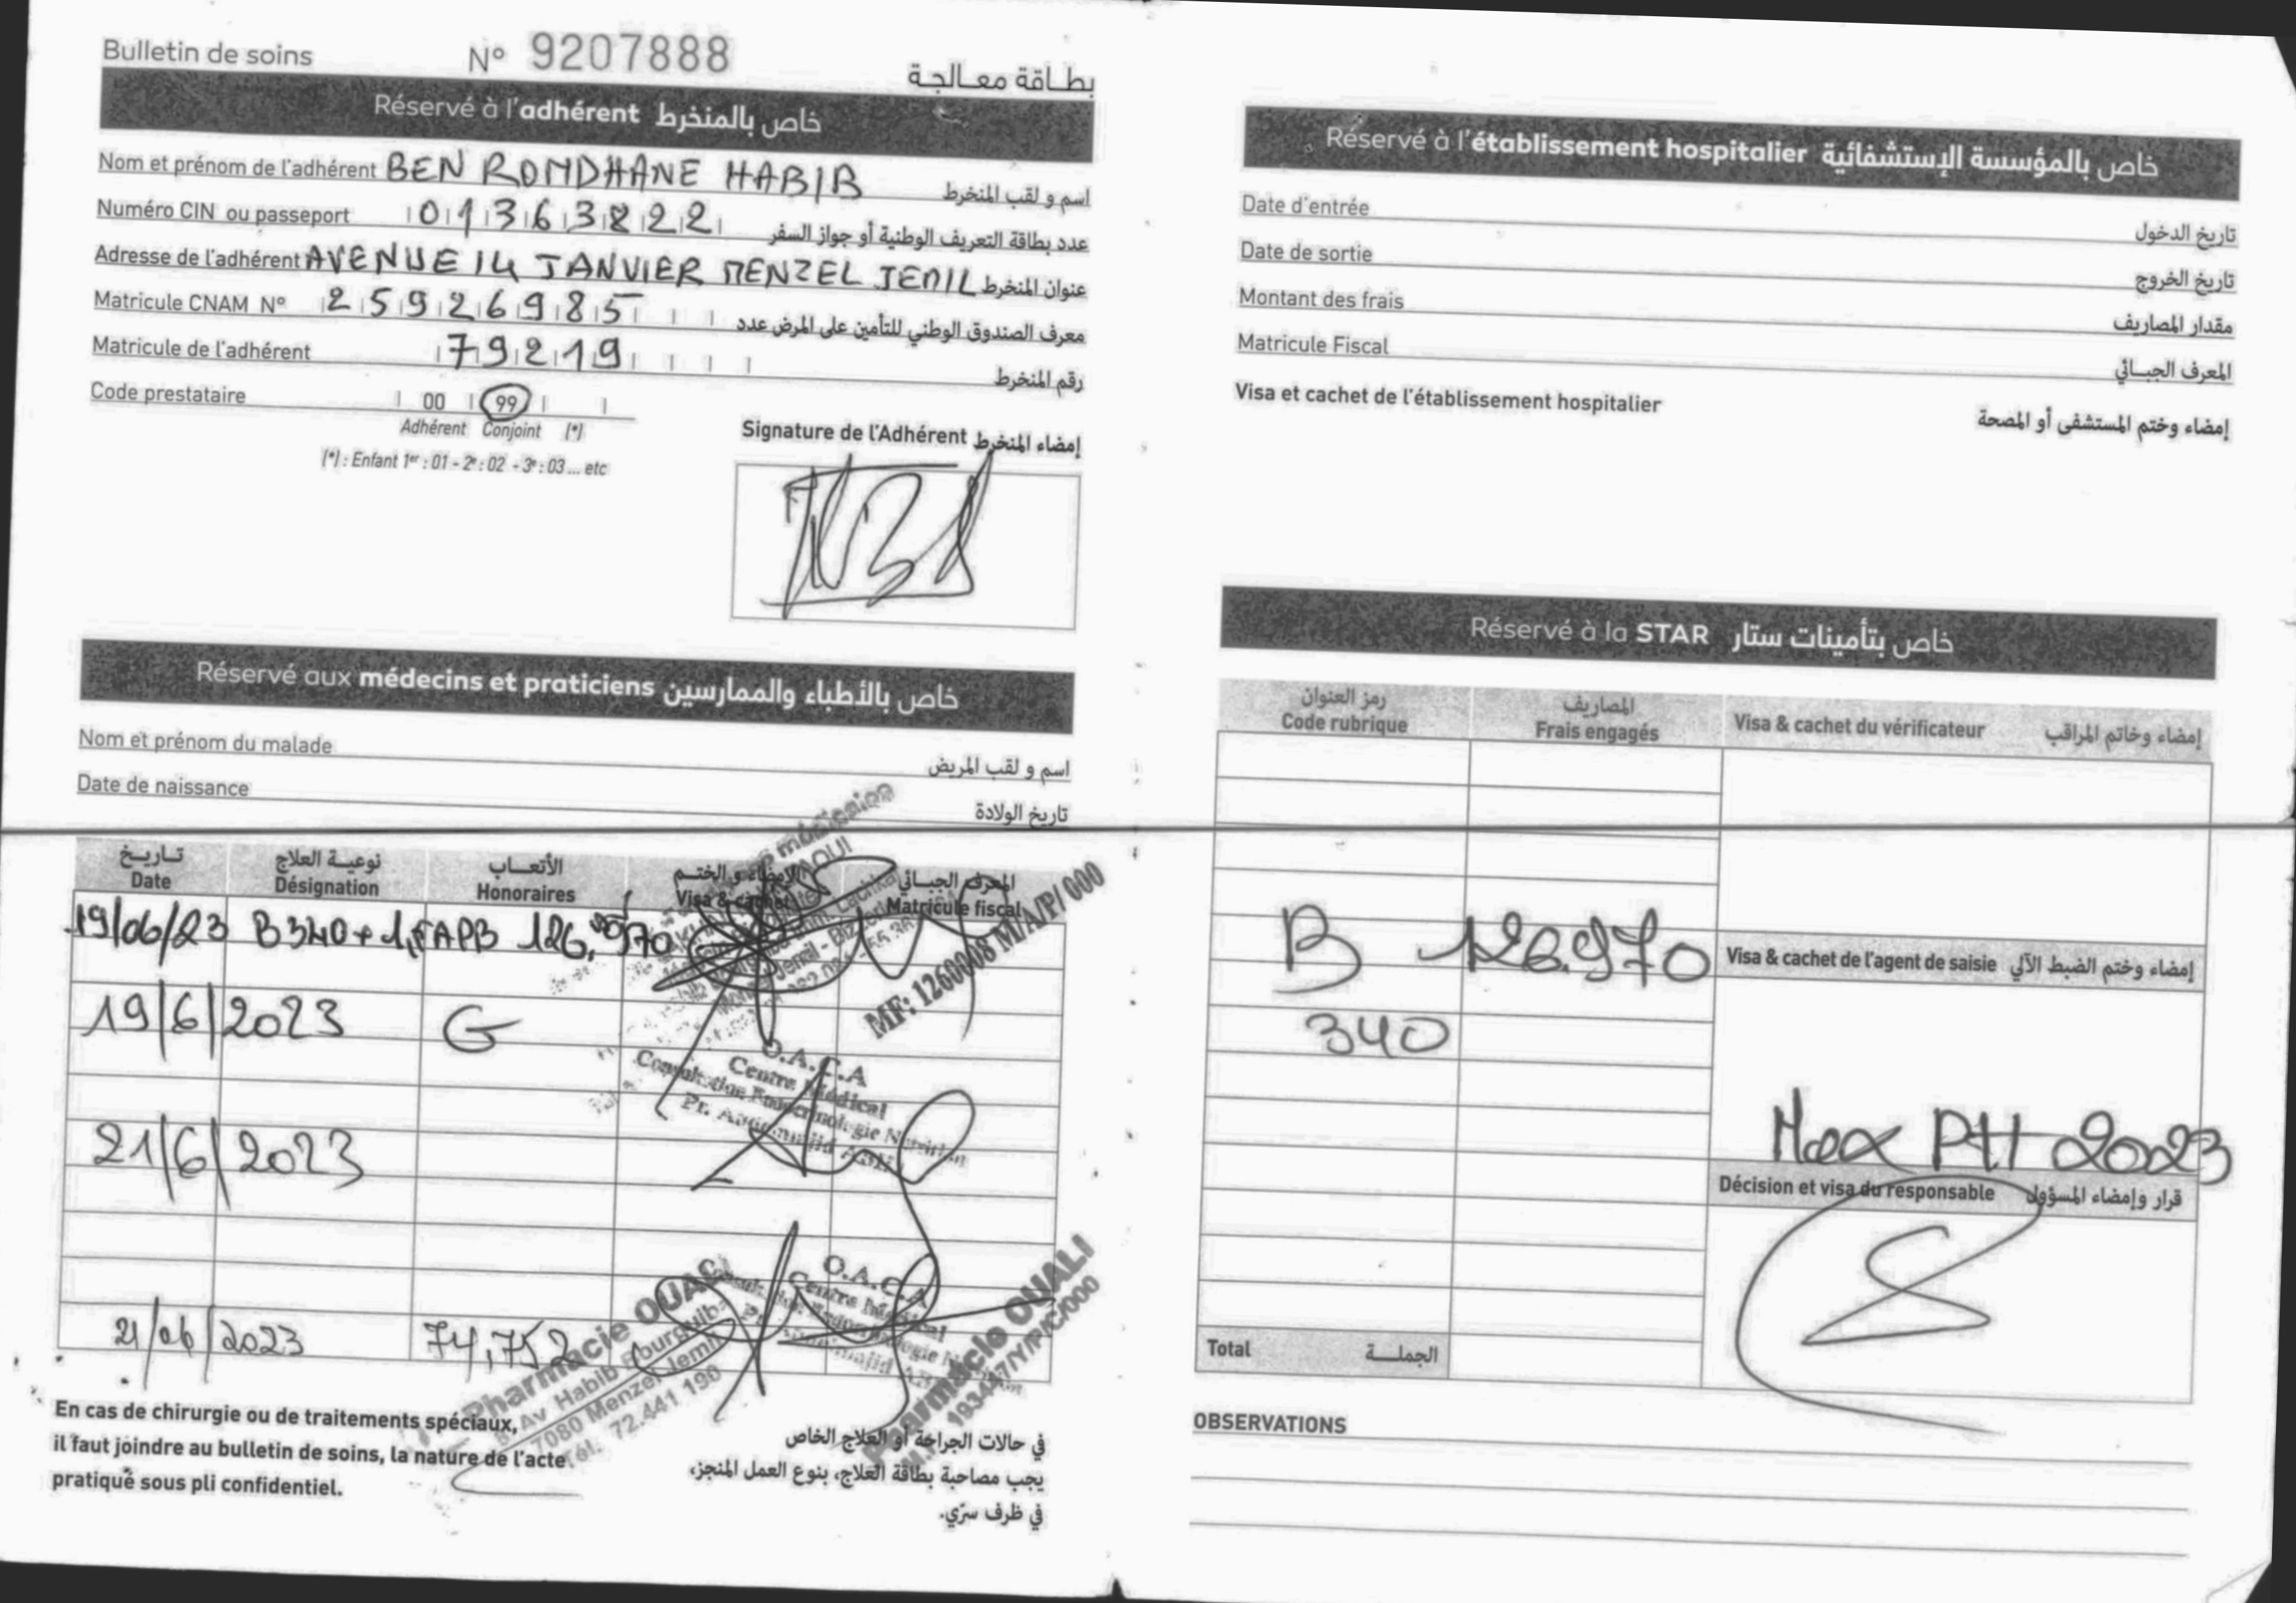 Bulletin de soins N° 9207888 بطاقة معالجة
Réservé à l'adhérent خاص بالمنخرط
Nom et prénom de l'adhérent BEN ROMDHANE HABIB اسم و لقب المنخرط
Numéro CIN ou passeport 01363822 عدد بطاقة التعريف الوطنية أو جواز السفر
Adresse de l'adhérent AVENUE 14 JANVIER MENZEL JEMIL عنوان المنخرط
Matricule CNAM N° 259269885 معرف الصندوق الوطني للتأمين على المرض عدد
Matricule de l'adhérent 79219 رقم المنخرط
Code prestataire 00 99
Adhérent Conjoint (*)
(*) : Enfant 1er : 01 - 2e : 02 - 3e : 03 ... etc
Signature de l'Adhérent إمضاء المنخرط
Réservé aux médecins et praticiens خاص بالأطباء والممارسين
Nom et prénom du malade اسم و لقب المريض
Date de naissance تاريخ الولادة
تاريخ نوعية العلاج الأتعاب الإمضاء و الختم المعرف الجبائي
Date Désignation Honoraires Visa & cachet Matricule fiscal
19/06/23 B340+1,5APB 126,970
MF: 1260008 M/A/P/000
19/6/2023 G
O.A.C.A
Centre Médical
Consultation Endocrinologie Nutrition
21/6/2023
O.A.C.A
Centre Médical
21/06/2023 74,752
Pharmacie OUALI
Av Habib Bourguiba
7080 Menzel Jemil
Tél. 72.441 190
Pharmacie OUALI
En cas de chirurgie ou de traitements spéciaux,
il faut joindre au bulletin de soins, la nature de l'acte
pratiqué sous pli confidentiel.
في حالات الجراحة أو العلاج الخاص
يجب مصاحبة بطاقة العلاج، بنوع العمل المنجز،
في ظرف سرّي.
Réservé à l'établissement hospitalier خاص بالمؤسسة الإستشفائية
Date d'entrée تاريخ الدخول
Date de sortie تاريخ الخروج
Montant des frais مقدار المصاريف
Matricule Fiscal المعرف الجبائي
Visa et cachet de l'établissement hospitalier إمضاء وختم المستشفى أو المصحة
Réservé à la STAR خاص بتأمينات ستار
رمز العنوان المصاريف
Code rubrique Frais engagés Visa & cachet du vérificateur إمضاء وخاتم المراقب
B 126.970
Visa & cachet de l'agent de saisie إمضاء وختم الضبط الآلي
340
Max PH 2023
Décision et visa du responsable قرار وإمضاء المسؤول
Total الجملة
OBSERVATIONS